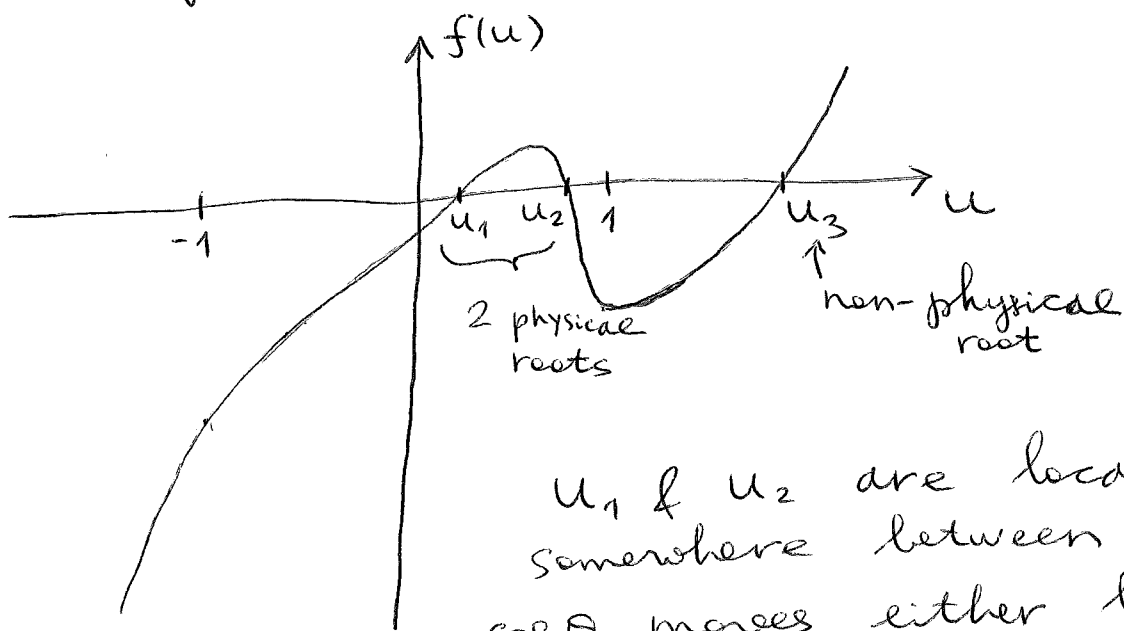 f(u)
-1
u₁
u₂
1
u₃
u
2 physical
roots
non-physical
root
u₁ & u₂ are loca
somewhere between
moves either